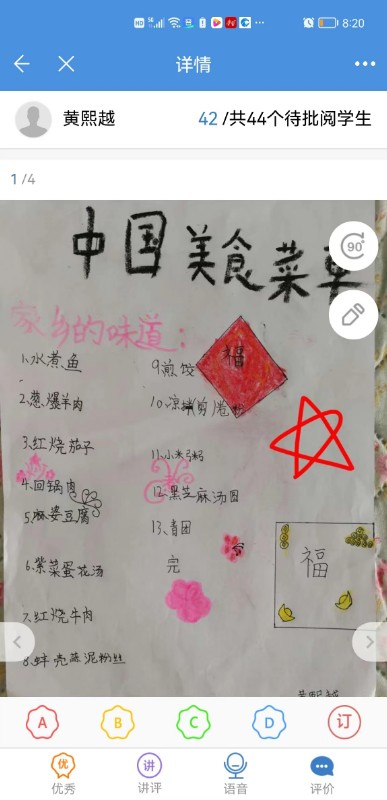 8:20
详情
黄熙越
42 /共44个待批阅学生
1 /4
90°
中国美食菜单
家乡的味道：
1、水煮鱼
2、葱爆羊肉
3、红烧茄子
4、回锅肉
5、麻婆豆腐
6、紫菜蛋花汤
7、红烧牛肉
8、蚌壳蒜泥粉丝
9、煎饺
10、凉拌
11、小米粥
12、黑芝麻汤圆
13、青团
完
福
福
黄熙越
A
B
C
D
订
优
优秀
讲
讲评
语音
评价